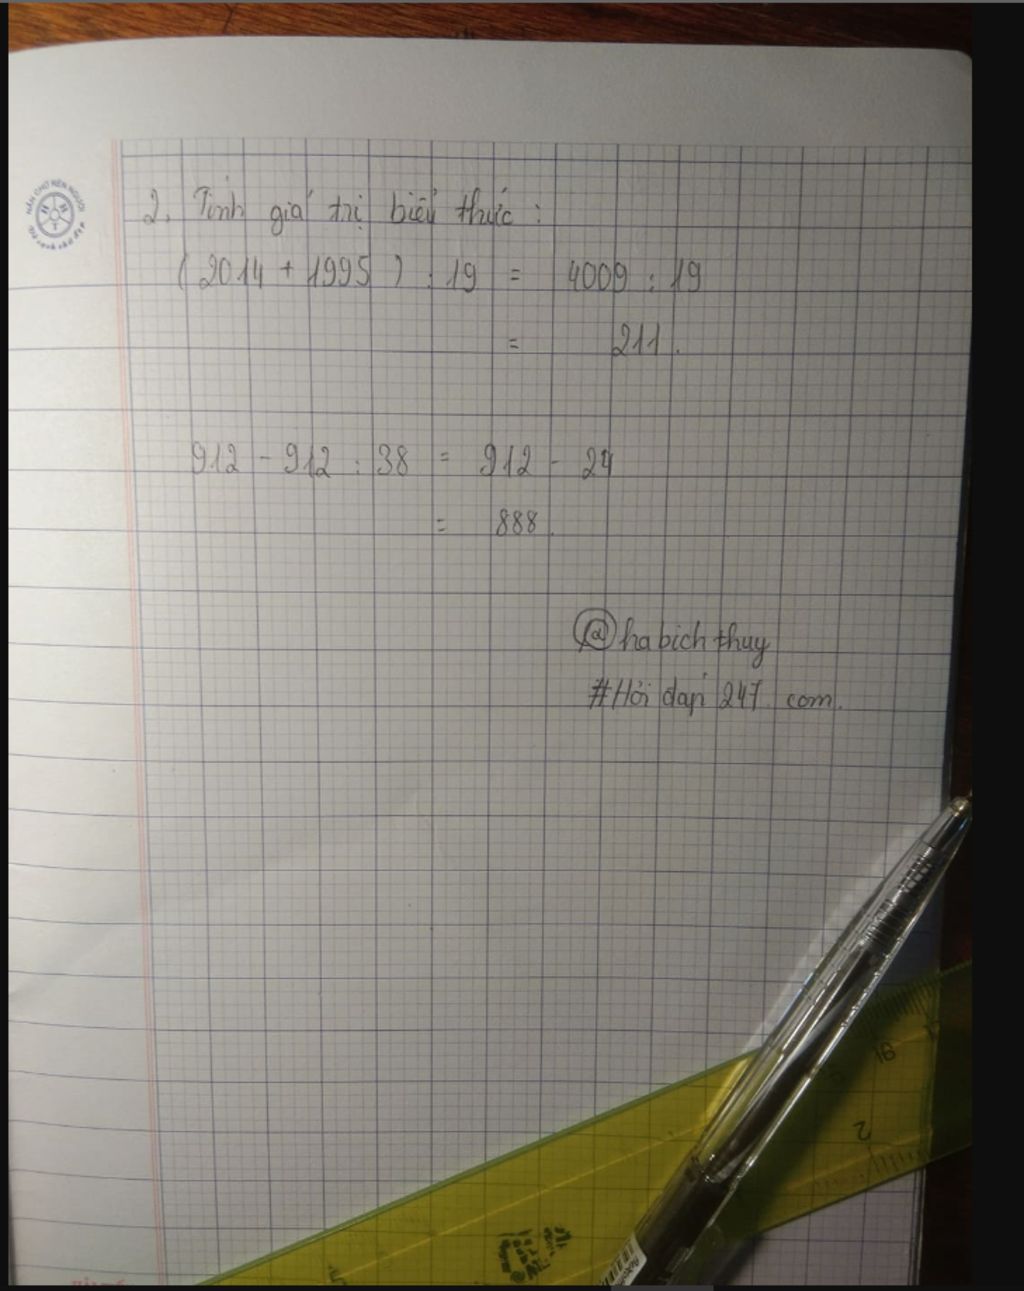 NHÂN CHO NÊN NGƯỜI
2. Tính giá trị biểu thức :
( 2014 + 1995 ) : 19 = 4009 : 19
= 211.
912 - 912 : 38 = 912 - 24
= 888.
@habichthuy
#Hỏi đáp 247 com.
16
2